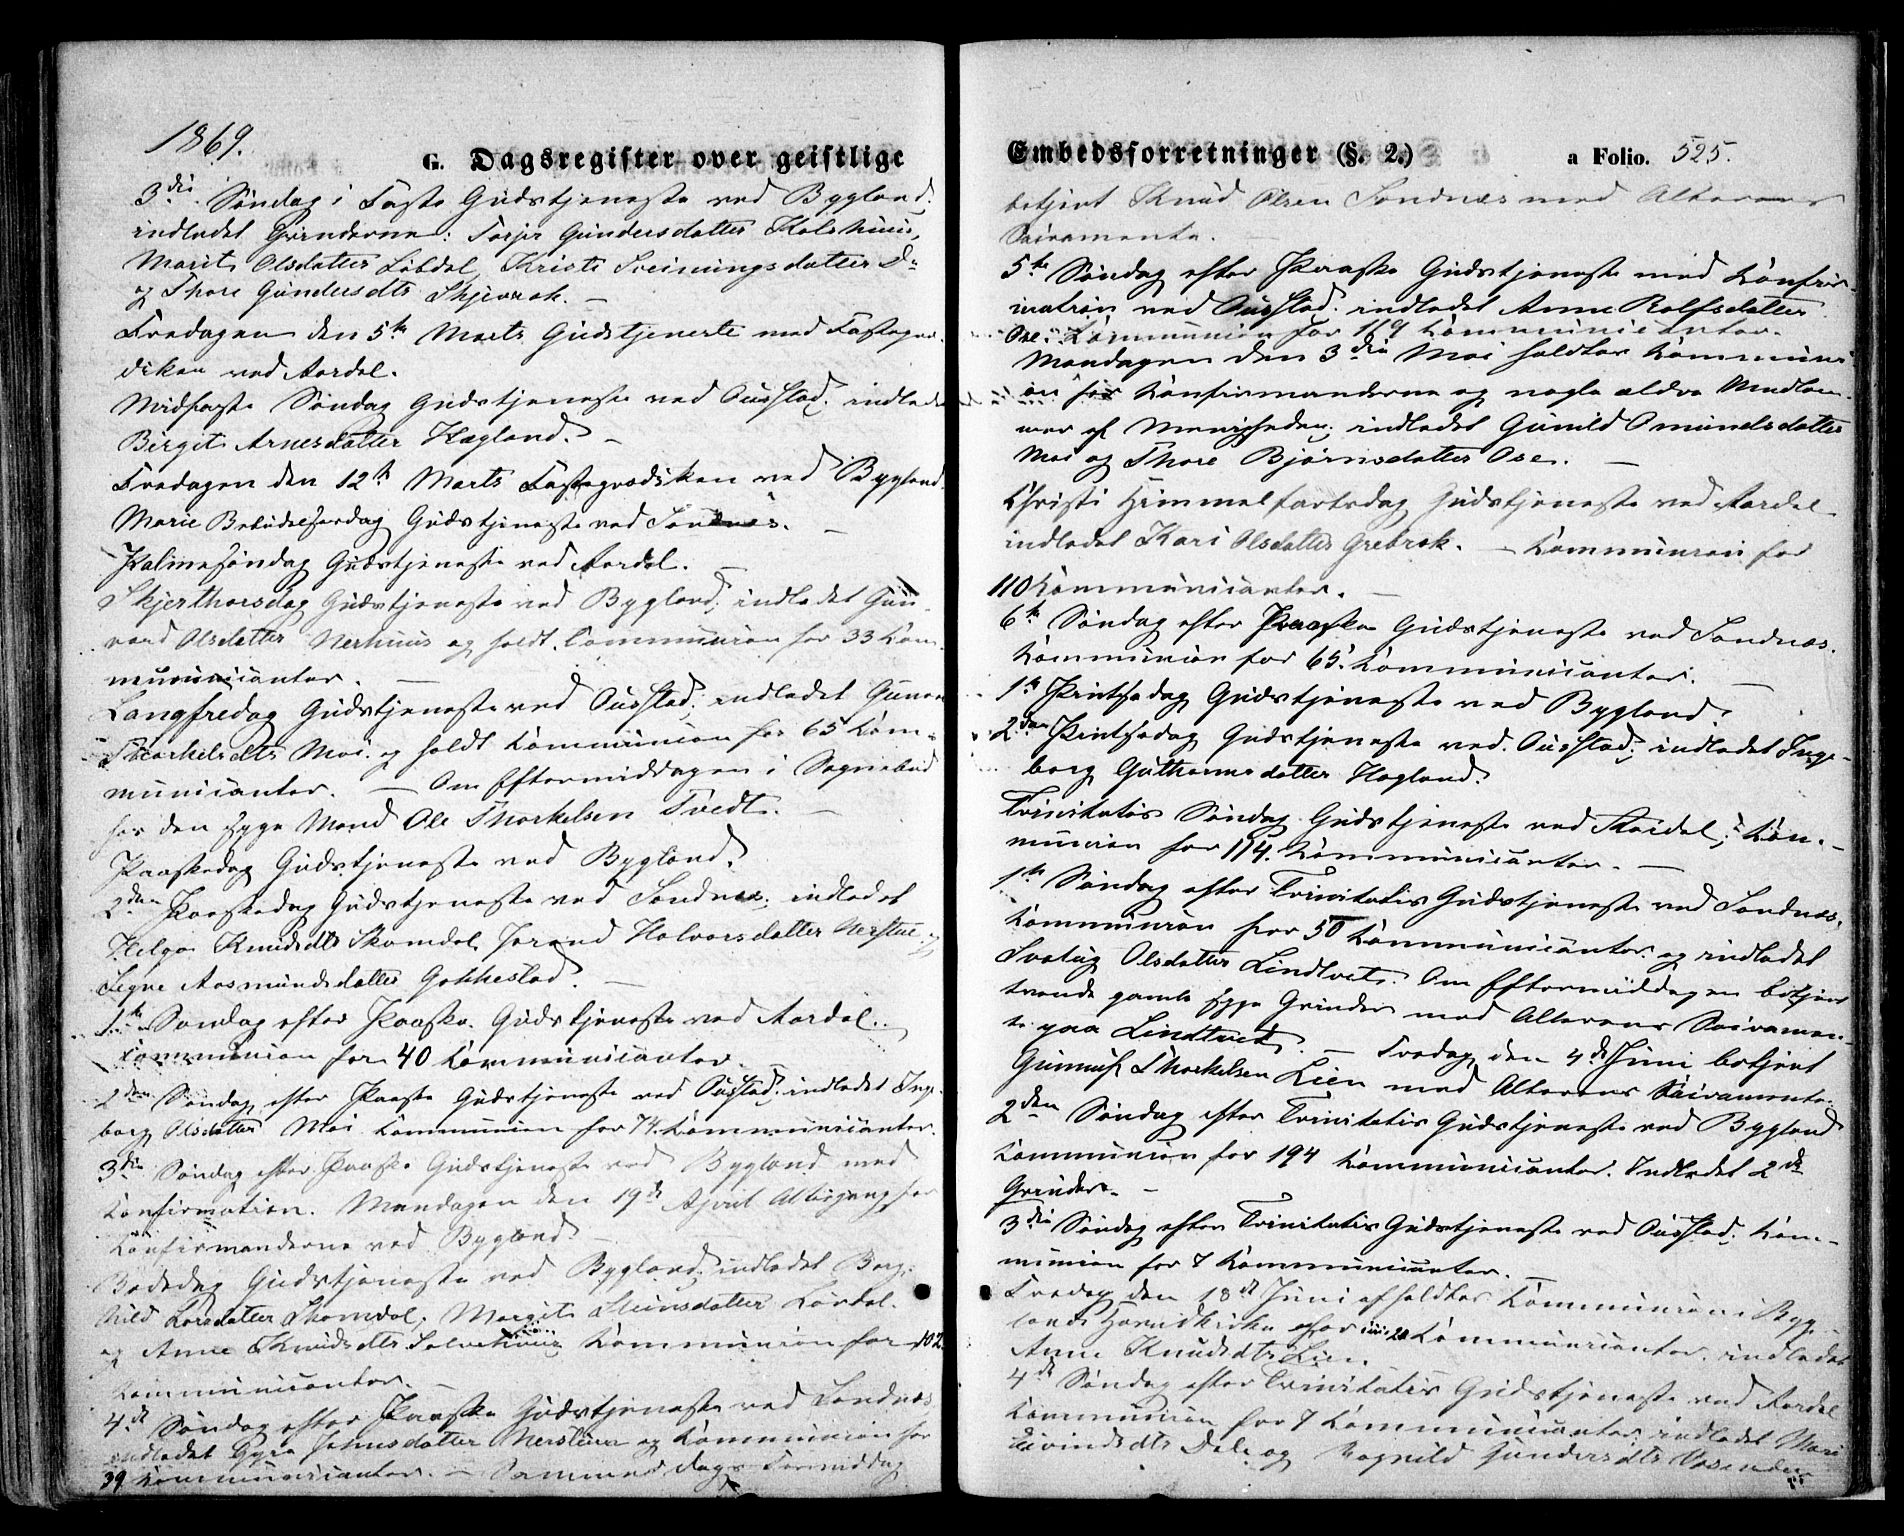 1869.
G. Dagsregister over geistlige
3die Søndag i Faste Gudstjeneste ved Bygland;
indledet Qvinderne: Torjer Gundersdatter
Marit Olsdatter Løbdal, Kristi Sveinungsdatter Do
og Thore Gundersdtr Skjevrak. —
Fredagen den 5te Marts Gudstjeneste med Fastepræ-
diken ved Aardal.
Midfaste Søndag Gudstjeneste ved Øustad; indledet
Birgit Arnesdatter Hægland. —
Fredagen den 12te Marts Fasteprædiken ved Bygland.
Marie Bebudelsesdag Gudstjeneste ved Sandnæs. —
Palmesøndag Gudstjeneste ved Aardal. —
Skjerthorsdag Gudstjeneste ved Bygland; indledet Gun-
vord Olsdatter Nerhuus og holdt Communion for 33 Com-
municanter. —
Langfredag Gudstjeneste ved Øustad; indledet
Thorkelsdtr Moi og holdt Kommunion for 65 Kom-
municanter. — Om Eftermiddagen i Sognebud
hos den syge Mand Ole Thorkelsen Tvedt. —
Paaskedag Gudstjeneste ved Bygland.
2den Paaskedag Gudstjeneste ved Sandnæs; indledet
Helga Knudsdtr Skomdal, Jorand Halvorsdatter Nerstue og
Signe Aasmundsdatter Gakkestad. —
1ste Søndag efter Paaske Gudstjeneste ved Aardal.
Kommunion for 40 Kommunicanter.
2den Søndag efter Paaske Gudstjeneste ved Øustad; indledet Inge-
borg Olsdatter Moi Kommunion for 74 Kommunicanter.
3die Søndag efter Paaske Gudstjeneste ved Bygland med
Konfirmation. Mandagen den 19de April Altergang for
Konfirmanderne ved Bygland. —
Bededag Gudstjeneste ved Bygland; indledet Borg-
hild Larsdatter Skomdal, Margit Steinsdatter Løvdal
og Anne Knudsdtr Kommunion for 102
Kommunicanter. —
4de Søndag efter Paaske Gudstjeneste ved Sandnæs
indledet Gyro Johnsdatter Nerstein og Kommunion for
39 Kommunicanter. — Sammes Dags Formiddag
Embedsforretninger (§. 2.) a Folio. 525.
betjent Knud Olsen Sandnæs med Alterens
Sacramente. —
5te Søndag efter Paaske Gudstjeneste med Konfir-
mation ved Øustad; indledet Anne Rolfsdatter
Ose. Kommunion for 119 Kommunicanter.
Mandagen den 3die Mai holdtes Kommuni-
on for Konfirmanderne og nogle ældre Medlem-
mer af Menigheden; indledet Gunild Omundsdatter
Moi og Thore Bjørnsdatter Ose. —
Christi Himmelfartsdag Gudstjeneste ved Aardal
indledet Kari Olsdatter Grebrok. — Kommunion for
110 Kommunicanter. —
6te Søndag efter Paaske Gudstjeneste ved Sandnæs.
Kommunion for 65 Kommunicanter. —
1ste Pintsedag Gudstjeneste ved Bygland.
2den Pintsedag Gudstjeneste ved Øustad; indledet Inge-
borg Guthormsdatter Hægland.
Trinitatis Søndag Gudstjeneste ved Aardal; Kom-
munion for 114 Kommunicanter. —
1ste Søndag efter Trinitatis Gudstjeneste ved Sandnæs,
Kommunion for 50 Kommunicanter og indledet
Svalug Olsdatter Lindtvet. Om Eftermiddagen betjent
tvende gamle syge Qvinder med Alterens Sacramen-
te paa Lindtvedt. — Fredag den 4de Juni betjent
Gunnuf Thorkelsen Lien med Alterens Sacramente.
2den Søndag efter Trinitatis Gudstjeneste ved Bygland
Kommunion for 194 Kommunicanter. Indledet 2de
Qvinder. —
3die Søndag efter Trinitatis Gudstjeneste ved Øustad. Kom-
munion for 7 Kommunicanter. —
Fredag den 18de Juni afholdtes Kommunion i Byg-
lands Hovedkirke for 20 Kommunicanter. indledet
Anne Knudsdtr Lien
4de Søndag efter Trinitatis Gudstjeneste ved Aardal
Kommunion for 7 Kommunicanter, indledet Mari
Eivindsdtr Dale og Ragnild Gundersdtr Vasenden